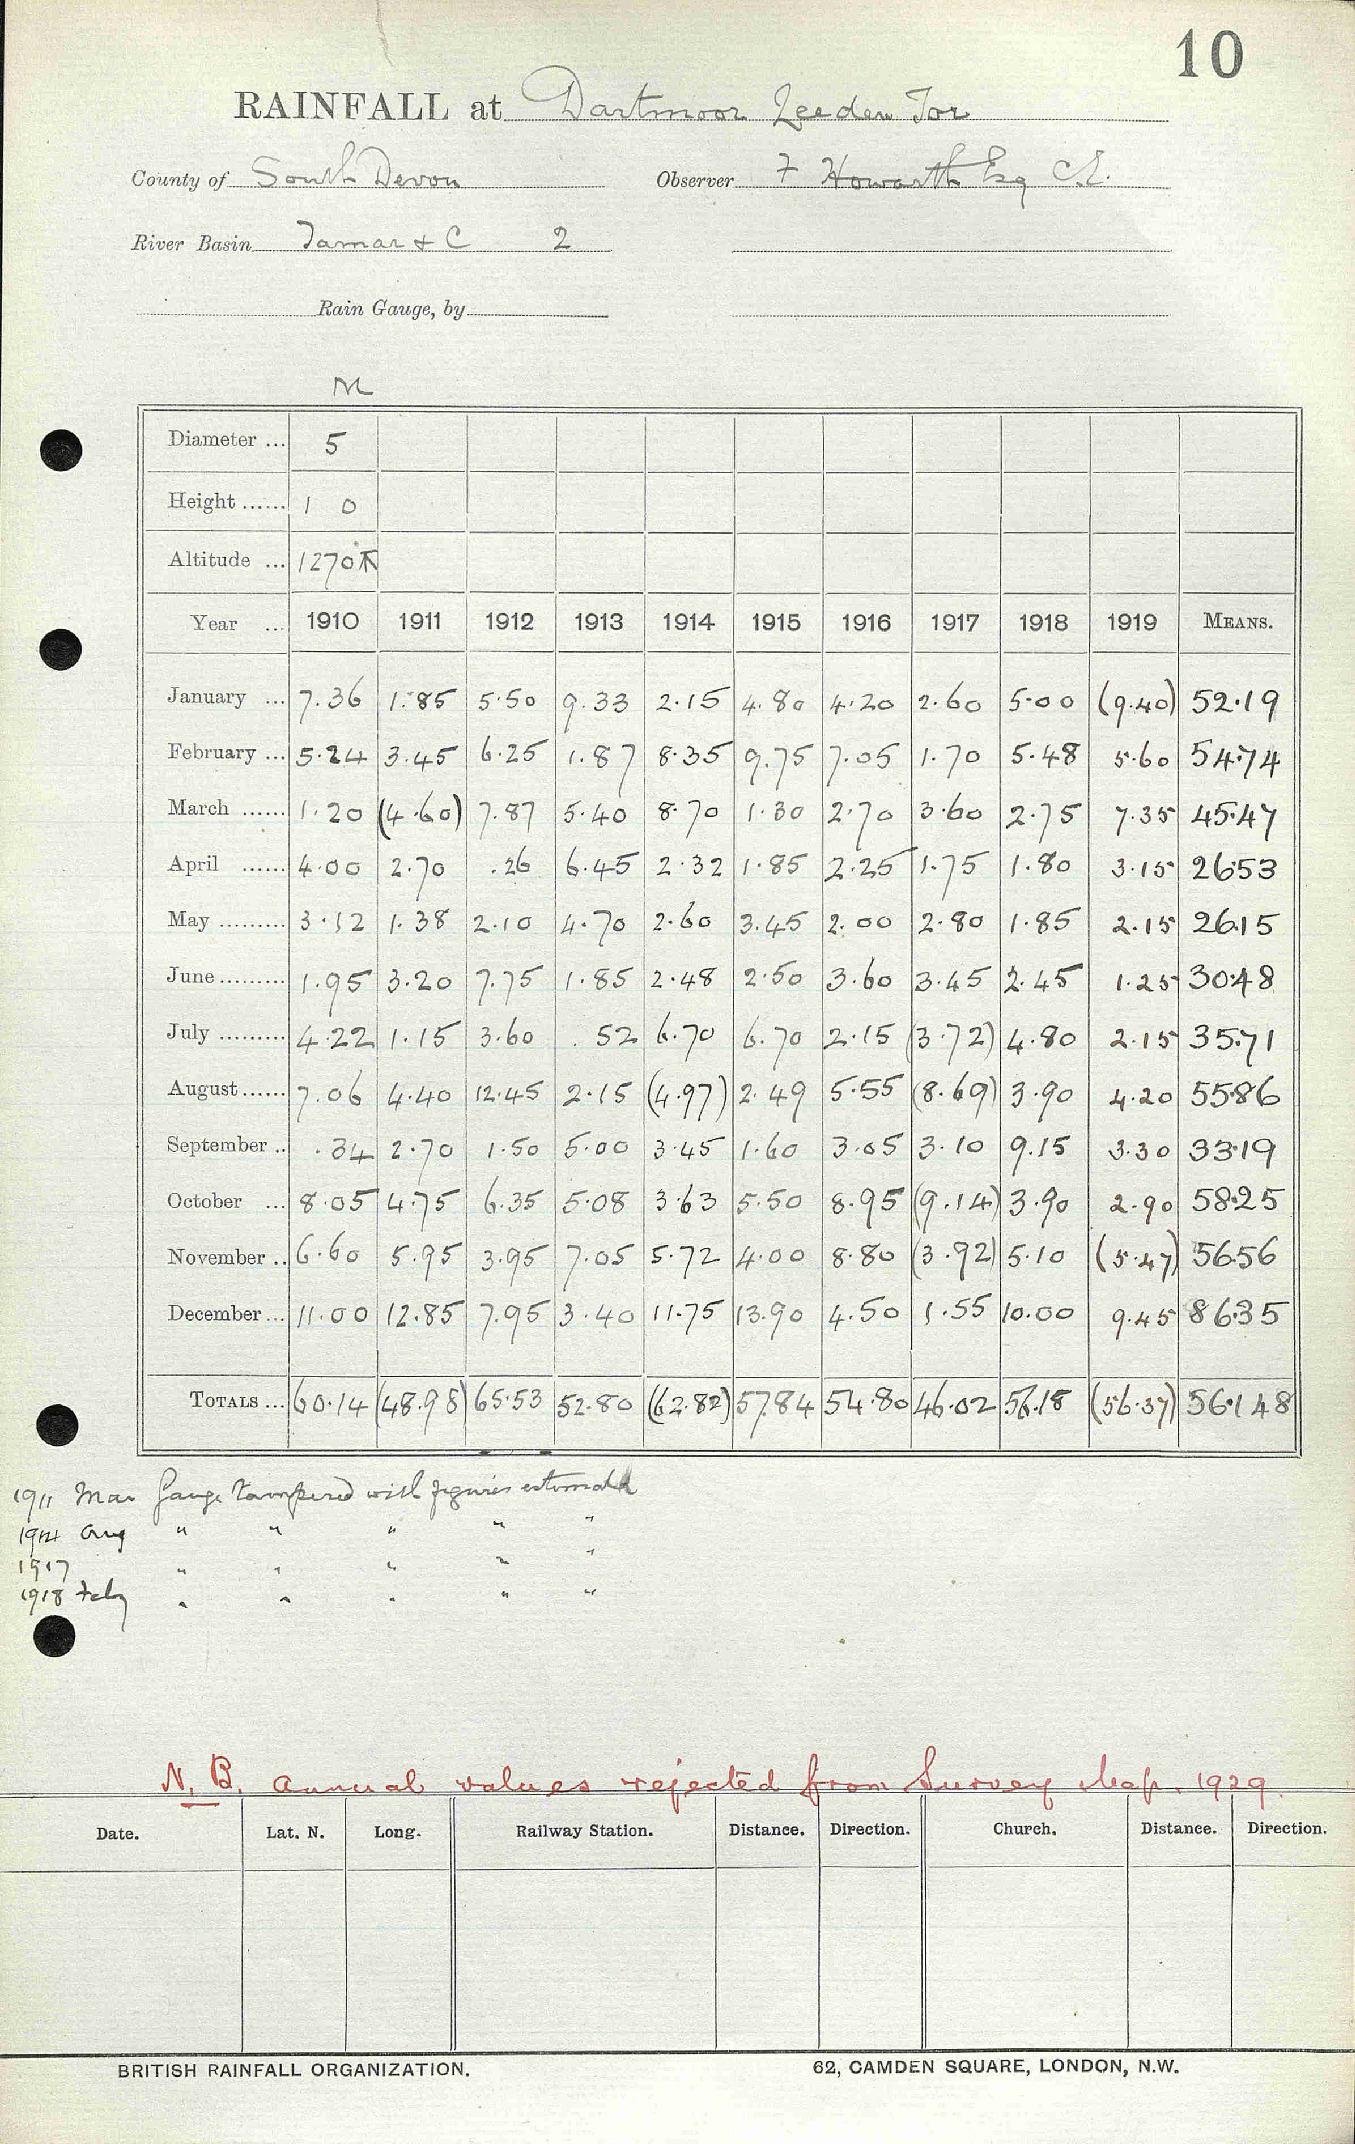 10
RAINFALL at Dartmoor Leeden Tor
County of South Devon Observer F Howarth Esq C.E.
River Basin Tamar & C 2
Rain Gauge, by
M
Diameter ... 5
Height ...... 1 0
Altitude ... 1270
Year ... 1910 1911 1912 1913 1914 1915 1916 1917 1918 1919 MEANS.
January ... 7.36 1.85 5.50 9.33 2.15 4.80 4.20 2.60 5.00 (9.40) 52.19
February ... 5.24 3.45 6.25 1.87 8.35 9.75 7.05 1.70 5.48 5.60 54.74
March ...... 1.20 (4.60) 7.87 5.40 8.70 1.30 2.70 3.60 2.75 7.35 45.47
April ...... 4.00 2.70 .26 6.45 2.32 1.85 2.25 1.75 1.80 3.15 26.53
May ......... 3.12 1.38 2.10 4.70 2.60 3.45 2.00 2.80 1.85 2.15 26.15
June ......... 1.95 3.20 7.75 1.85 2.48 2.50 3.60 3.45 2.45 1.25 30.48
July ......... 4.22 1.15 3.60 .52 6.70 6.70 2.15 (3.72) 4.80 2.15 35.71
August ...... 7.06 4.40 12.45 2.15 (4.97) 2.49 5.55 (8.69) 3.90 4.20 55.86
September .. .34 2.70 1.50 5.00 3.45 1.60 3.05 3.10 9.15 3.30 33.19
October ... 8.05 4.75 6.35 5.08 3.63 5.50 8.95 (9.14) 3.90 2.90 58.25
November .. 6.60 5.95 3.95 7.05 5.72 4.00 8.80 (3.92) 5.10 (5.47) 56.56
December ... 11.00 12.85 7.95 3.40 11.75 13.90 4.50 1.55 10.00 9.45 86.35
TOTALS ... 60.14 (48.98) 65.53 52.80 (62.82) 57.84 54.80 46.02 56.18 (56.37) 561.48
1911 Mar Gauge tampered with figures estimated
1914 Aug " " " " "
1917 " " " " "
1918 Feby " " " " "
N.B. Annual values rejected from Survey Map. 1929.
Date. Lat. N. Long. Railway Station. Distance. Direction. Church. Distance. Direction.
BRITISH RAINFALL ORGANIZATION. 62, CAMDEN SQUARE, LONDON, N.W.